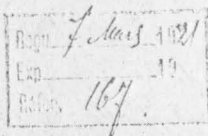 Reçu 7 Mars 1921
Exp. 19
167